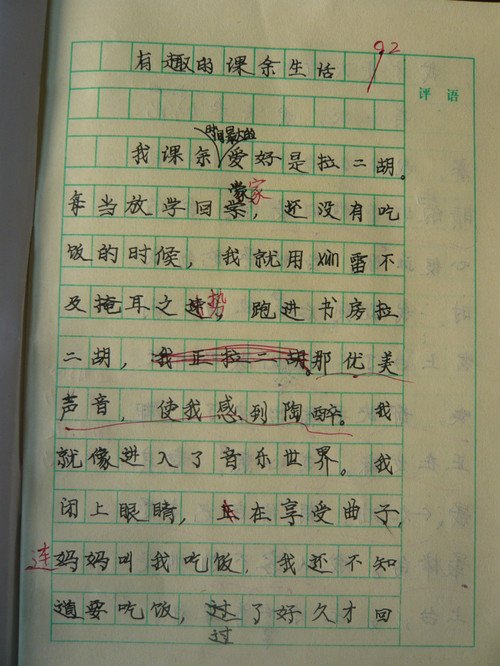 有趣的课余生活
92
评语
时间最大的
我课余爱好是拉二胡。
每当放学回家，还没有吃
饭的时候，我就用xùn雷不
及掩耳之势，跑进书房拉
二胡，我正拉二胡。那优美
声音，使我感到陶醉。我
就像进入了音乐世界。我
闭上眼睛，正在享受曲子，
连妈妈叫我吃饭，我还不知
道要吃饭，过了好久才回
过